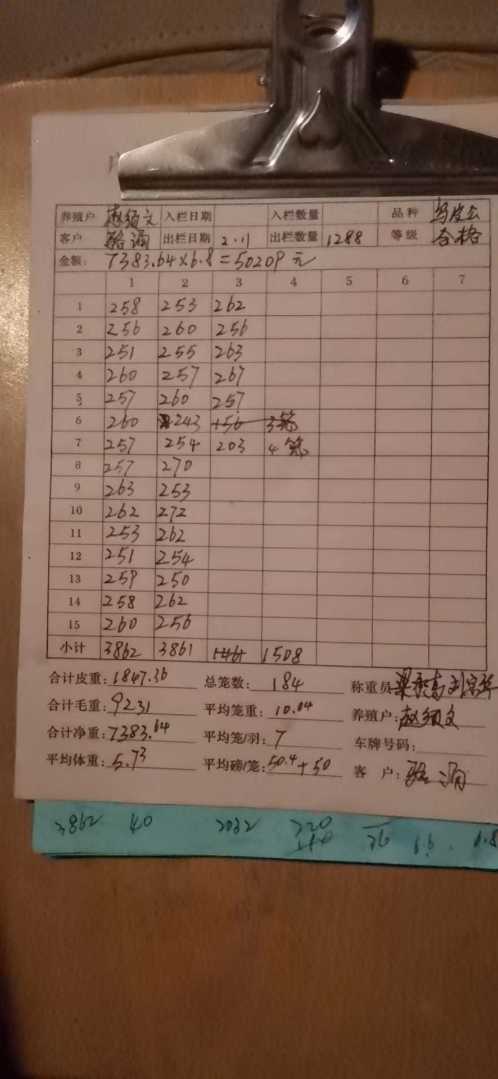 养殖户 赵须文 入栏日期 入栏数量 品种 乌皮公
客户 骆涌 出栏日期 2.11 出栏数量 1288 等级 合格
金额: 7383.64×6.8=50209元
1 2 3 4 5 6 7
1 258 253 262
2 256 260 256
3 251 255 263
4 260 257 267
5 257 260 257
6 260 243 156 3笼
7 257 254 203 4笼
8 257 270
9 263 253
10 262 272
11 253 262
12 251 254
13 259 250
14 258 262
15 260 256
小计 3862 3861 1461 1508
合计皮重: 1847.36 总笼数: 184 称重员
合计毛重: 9231 平均笼重: 10.04 养殖户: 赵须文
合计净重: 7383.64 平均笼/羽: 7 车牌号码:
平均体重: 5.73 平均磅/笼: 50.4+50 客 户: 骆涌
3862 40 2032 220 26 6.6 6.8